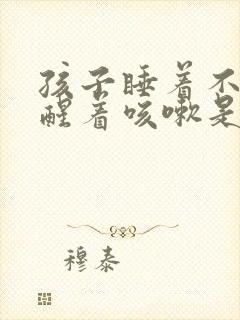 孩子睡着不
醒着咳嗽是
穆泰